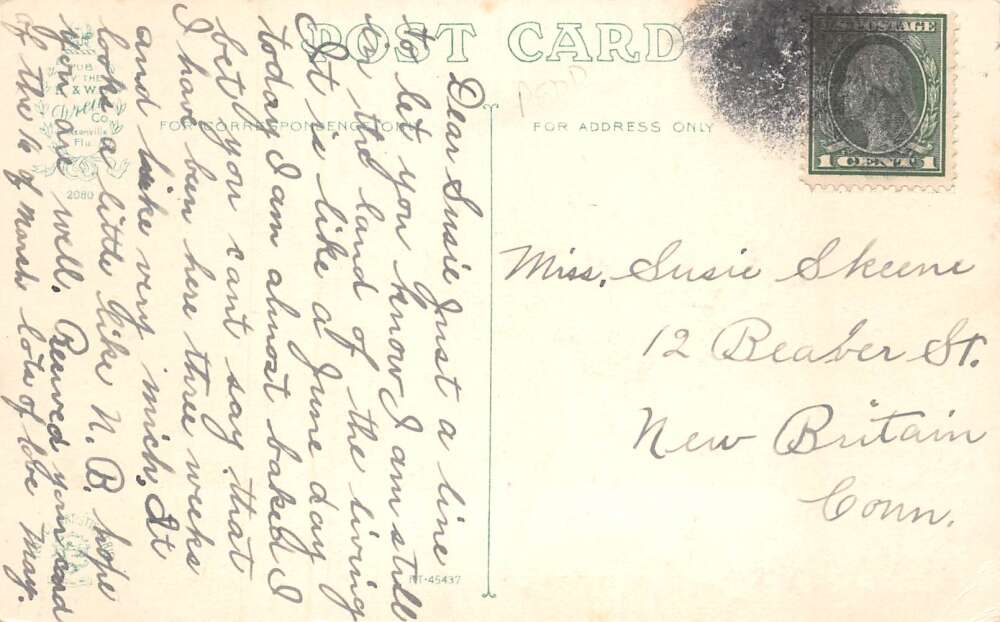 POST CARD
FOR CORRESPONDENCE ONLY
FOR ADDRESS ONLY
PUB
BY THE
H & W B
Drew
Co.
Jacksonville
Fla
2080
RT-45437
POSTAGE
1 CENT 1
Dear Susie Just a line
to let you know I am still
in the land of the living
It is like a June day
today I am almost baked I
bet you cant say that
I have ben here three weeks
and like very mich, It
looks a little like N. B. hope
you are well. Receved your card
of the 16 of March lots of love May.
Miss, Susie Skeene
12 Beaber St.
New Britain
Conn.